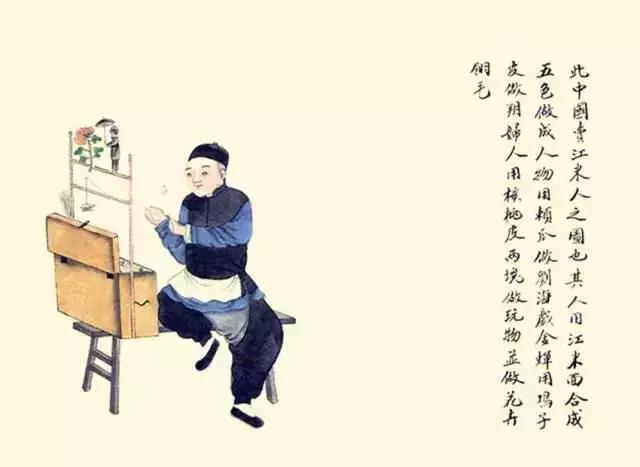 此中國賣江米人之圖也其人用江米面合成
五色做成人物用頼瓜做劉海戲金蟬用塢子
皮做翔婦人用核桃皮兩塊做玩物並做花卉
翎毛